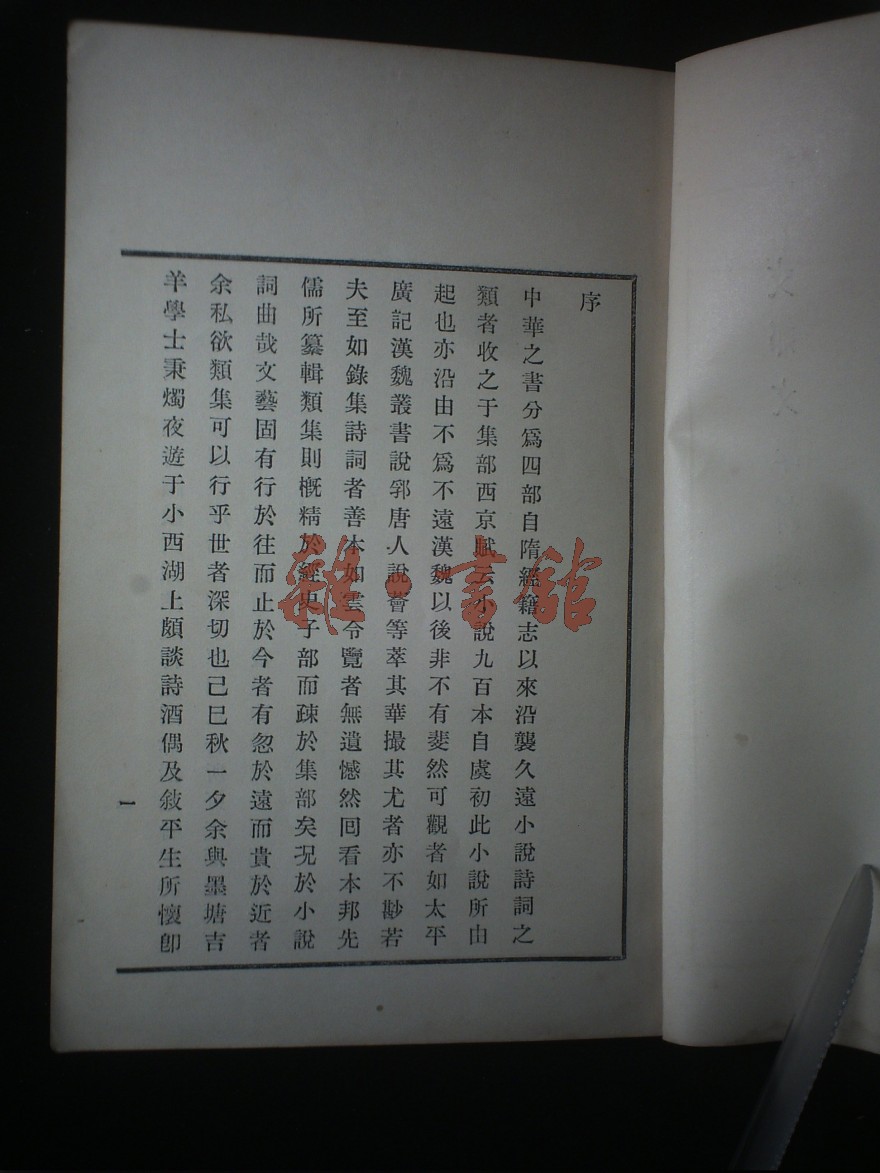 序
中華之書分爲四部自隋經籍志以來沿襲久遠小說詩詞之
類者收之于集部西京賦云小說九百本自虞初此小說所由
起也亦沿由不爲不遠漢魏以後非不有斐然可觀者如太平
廣記漢魏叢書說郛唐人說薈等萃其華撮其尤者亦不尠若
夫至如錄集詩詞者善本如雲令覽者無遺憾然囘看本邦先
儒所纂輯類集則概精於經史子部而疎於集部矣况於小說
詞曲哉文藝固有行於往而止於今者有忽於遠而貴於近者
余私欲類集可以行乎世者深切也己巳秋一夕余與墨塘吉
羊學士秉燭夜遊于小西湖上頗談詩酒偶及敍平生所懷卽
一
雜·書館